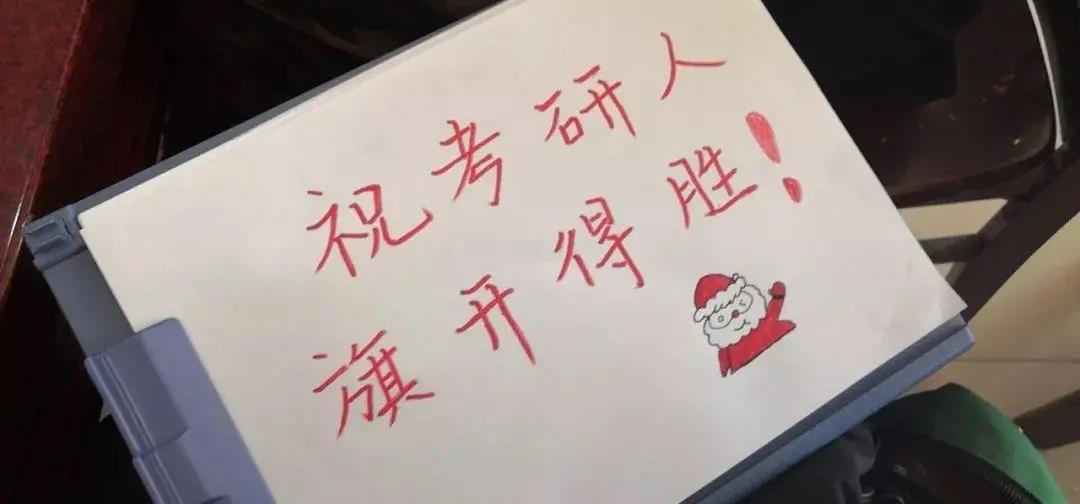 祝考研人
旗开得胜!